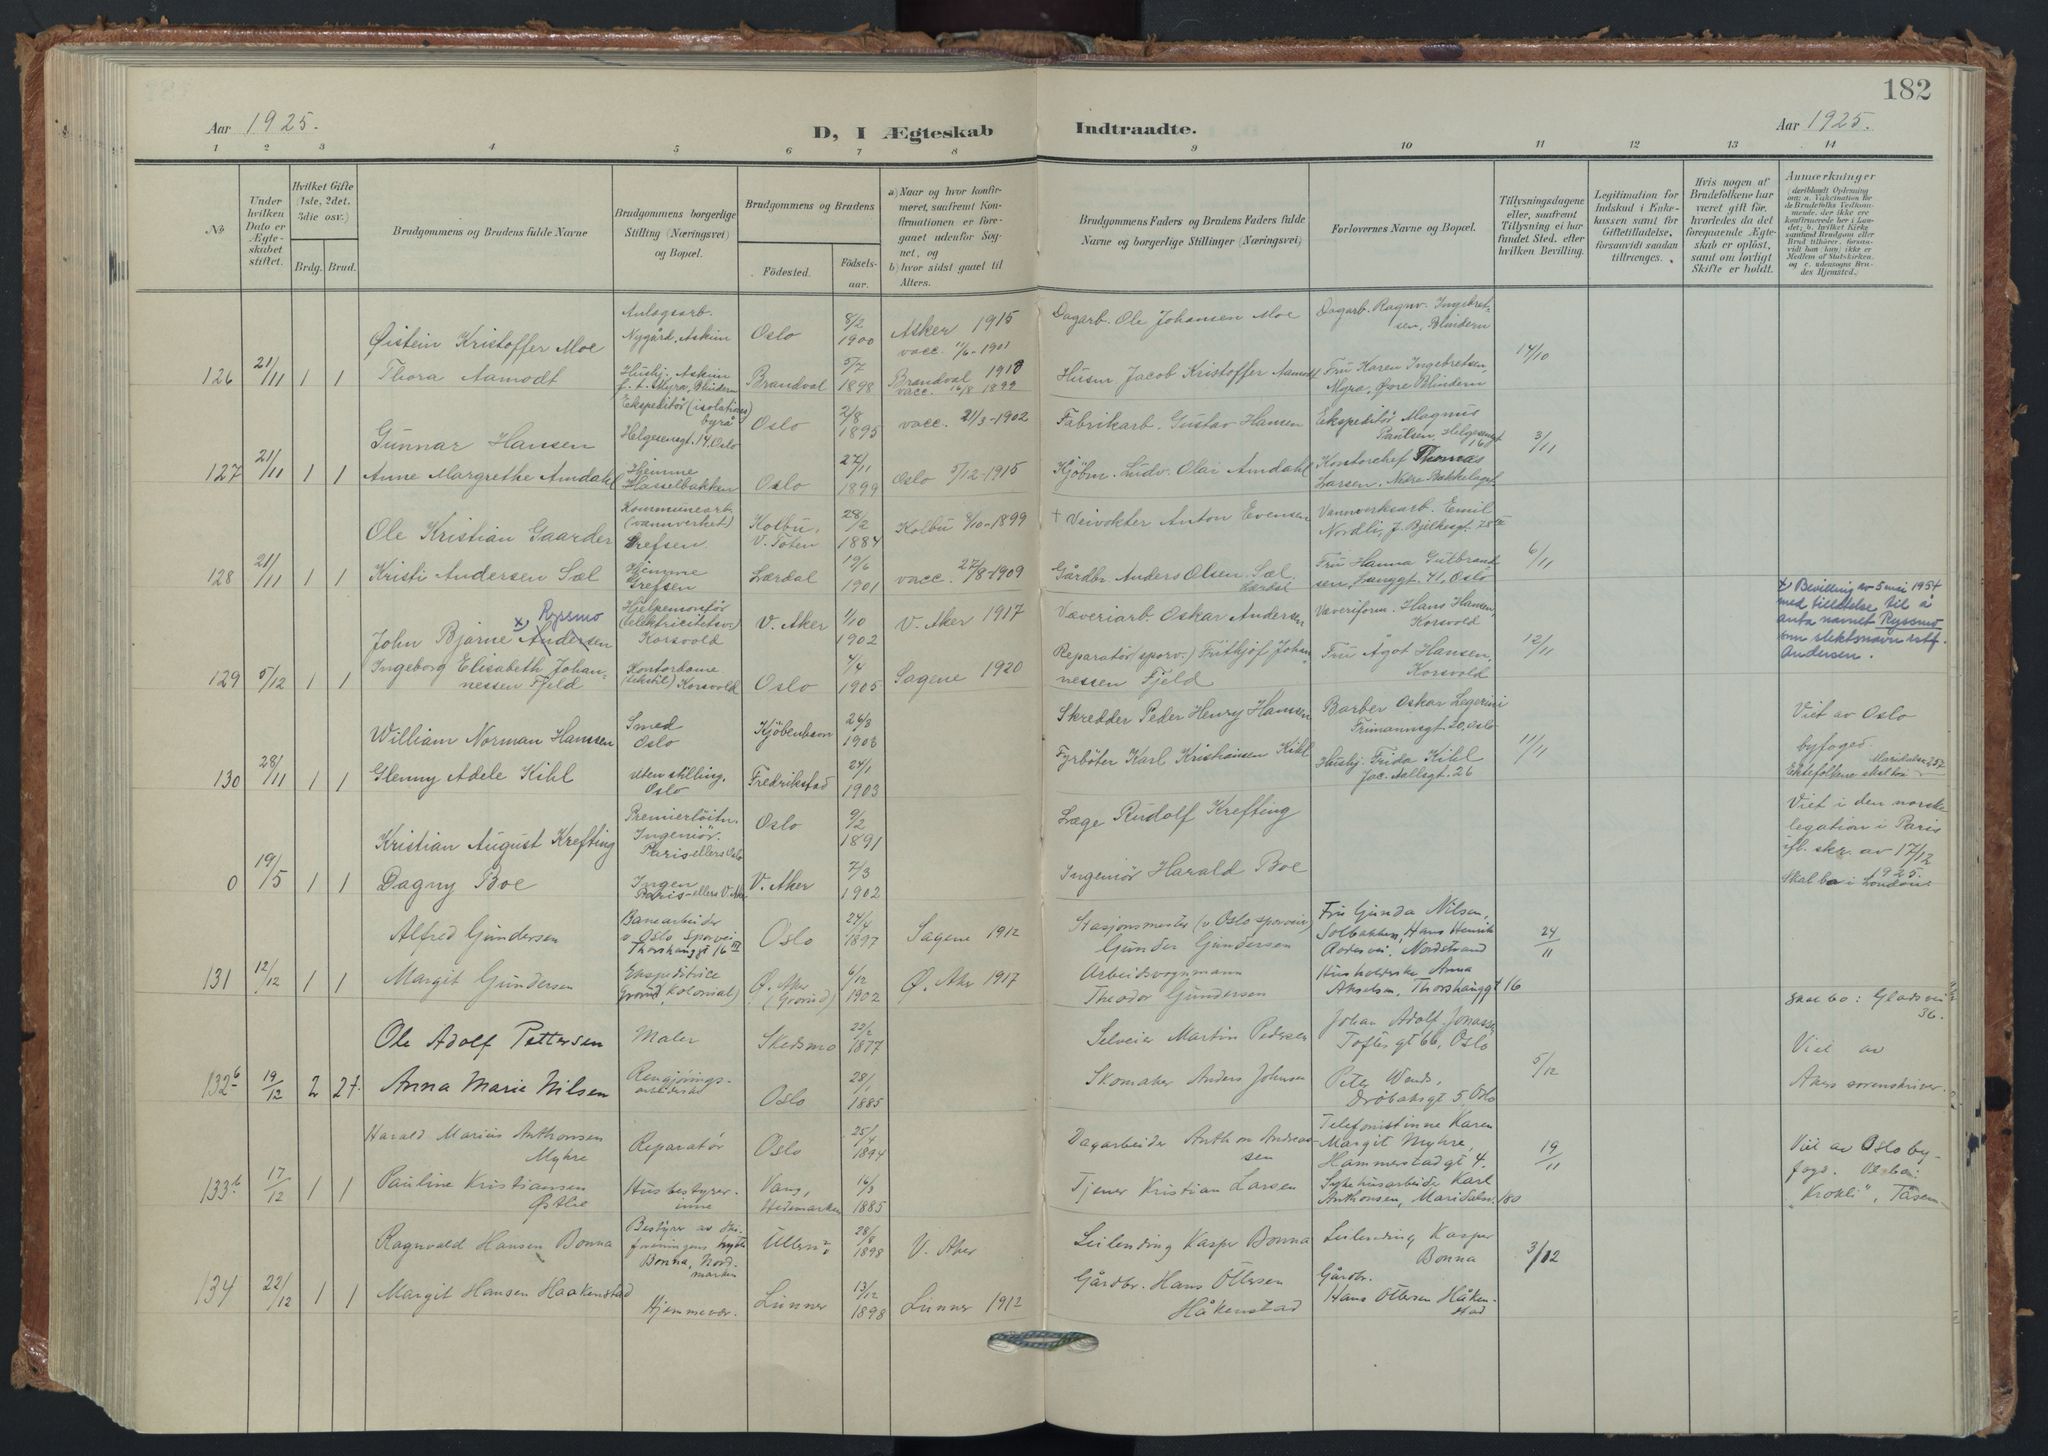 182
Aar 1925.
D, I Ægteskab Indtraadte.
Aar 1925.
1 2 3 4 5 6 7 8 9 10 11 12 13 14
No
Under hvilken Dato er Ægteskabet stiftet.
Hvilket Gifte (1ste, 2det, 3die osv.)
Brdg. Brud.
Brudgommens og Brudens fulde Navne
Brudgommens borgerlige Stilling (Næringsvei) og Bopæl.
Brudgommens og Brudens
Fødested.
Fødselsaar.
a) Naar og hvor konfirmeret, saafremt Konfirmationen er foregaaet udenfor Sognet, og
b) hvor sidst gaaet til Alters.
Brudgommens Faders og Brudens Faders fulde Navne og borgerlige Stillinger (Næringsvei)
Forlovernes Navne og Bopæl.
Tillysningsdagene eller, saafremt Tillysning ei har fundet Sted, efter hvilken Bevilling.
Legitimation for Indskud i Enkekassen samt for Giftetilladelse, forsaavidt saadan tiltrænges.
Hvis nogen af Brudefolkene har været gift før, hvorledes da det foregaaende Ægteskab er opløst, samt om lovligt Skifte er holdt.
Anmærkninger
Øistein Kristoffer Moe
Anlagsarb. Nygård, Askim
Oslo 8/2 1900
Asker 1915 vacc. 11/6-1901
Dagarb. Ole Johansen Moe
Dagarb. Ragnv. Ingebretsen, Blindern
126 21/11 1 1 Thora Aamodt
Hushj. Askim f. t. Myra, Blindern
Brandval 5/7 1898
Brandval 1913 vacc. 16/8 1899
Husm. Jacob Kristoffer Aamodt
Fru Karen Ingebretsen, Myra, Øvre Blindern
14/10
Gunnar Hansen
Ekspeditør (isolationsbyrå) Helgesensgt. 14, Oslo
Oslo 2/8 1895
vacc. 21/3-1902
Fabrikarb. Gustav Hansen
Ekspeditør Magnus Paulsen, Helgesengt 16
127 21/11 1 1 Anne Margrethe Amdahl
Hjemme Hasselbakken
Oslo 27/11 1899
Oslo 5/12-1915
Kjøbm. Ludv. Olai Amdahl
Kontorchef Thomas Larsen, Nedre Bekkelaget
3/11
Ole Kristian Gaarder
Kommunearb. (vannverket) Grefsen.
Kolbu, V. Toten 28/2 1884
Kolbu 8/10-1899
+ Veivokter Anton Evensen
Vannverksarb. Emil Nordli, J. Bjelkesgt. 78
128 21/11 1 1 Kristi Andersen Sæl
Hjemme Grefsen
Lærdal 19/6 1901
vacc. 27/8-1909
Gårdbr. Anders Olsen Sæl. Lærdal
Fru Hanna Gulbrandsen, Langgt. 41, Oslo
6/11
x, Ryssmo
John Bjarne Andersen
Hjelpemontør (elektricitetsv.) Korsvold
V. Aker 1/10 1902
V. Aker 1917
Væveriarb. Oskar Andersen
Væveriform. Hans Hansen, Korsvold
x) Bevilling av 5 mai 1954 med tillatelse til å anta navnet Ryssmo som slektsnavn istf. Andersen.
129 5/12 1 1 Ingeborg Elisabeth Johannessen Fjeld
Kontordame (tekstil) Korsvold
Oslo 4/4 1905
Sagene 1920
Reparatør (sporv.) Frithjof Johannessen Fjeld
Fru Ågot Hansen, Korsvold
12/11
William Norman Hanssen
Smed Oslo
Kjøbenhavn 26/3 1903
Skredder Peder Henry Hansen
Barber Oskar Lagerini Frimannsgt. 20, Oslo
Viet av Oslo byfoged.
130 28/11 1 1 Glenny Adele Kihl
Uten stilling, Oslo
Fredrikstad 24/1 1903
Fyrbøter Karl Kristiansen Kihl
Hushj. Frida Kihl Jac. Aallsgt. 26
11/11
Ektefolkene skal bo Maridalsv. 257
Kristian August Krefting
Premierløitn. Ingeniør. Paris ellers Oslo
Oslo 9/2 1891
Læge Rudolf Krefting
Viet i den norske legation i Paris ifl. skr. av 17/12 1925.
0 19/5 1 1 Dagny Boe
Ingen Paris-ellers V. Aker
V. Aker 7/3 1902
Ingeniør Harald Boe
Skal bo i London
Alfred Gundersen
Banearbeider v. Oslo sporvei Thorshauggt 16 III
Oslo 24/4 1897
Sagene 1912
Stasjonsmester (v. Oslo sporvei) Gunder Gundersen
Fru Gunda Nilsen, Solbakken, Hans Henrik vei, Nordstrand
24/11
131 12/12 1 1 Margit Gundersen
Ekspeditrice Grorud, (Kolonial)
Ø. Aker (Grorud) 6/12 1902
Ø. Aker 1917
Arbeidsvognmann Theodor Gundersen
Husholderske Anna Akselsen, Thorshauggt 16
skal bo: Gladsvei 36.
Ole Adolf Pettersen
Maler
Skedsmo 22/2 1877
Selveier Martin Pedersen
Johan Adolf Jonassen Toftes gt 66, Oslo
Viet av Akers sorenskriver.
132 b 19/12 2 2f. Anna Marie Nilsen
Rengjøringsarbeiderske
Oslo 28/1 1885
Skomaker Anders Johnsen
Peter Wends, Drøbaksgt 5, Oslo
5/12
Harald Marius Anthonsen Myhre
Reparatør
Oslo 25/4 1894
Dagarbeider Anthon Andreassen
Telefonistinne Karen Margit Myhre, Hammerstadgt 4.
19/11
Viet av Oslo byfogd.
133 b 17/12 1 1 Pauline Kristiansen Østlie
Husbestyrerinne
Vang, Hedemarken 16/3 1885
Tjener Kristian Larsen
Sykehusarbeider Karl Anthonsen, Maridalsv. 180
"Krokli", Tåsen
Ragnvald Hansen Bonna
Bestyrer av Skiforeningens hytte Bonna, Nordmarken
Ullern 28/8 1898
V. Aker
Leilending Kasper Bonna
Leilending Kasper Bonna
3/12
134 22/12 1 1 Margit Hansen Haakenstad
Hjemmevær.
Lunner 13/12 1898
Lunner 1912
Gårdbr. Hans Ottersen Håkenstad
Gårdbr. Hans Ottersen Håkenstad